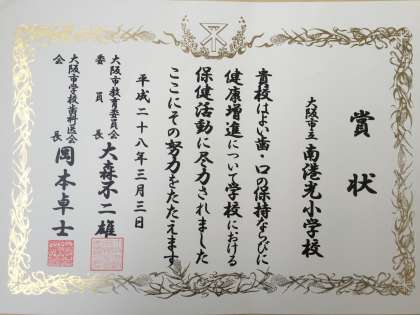 賞状
大阪市立 南港光小学校
貴校はよい歯・口の保持ならびに
健康増進について学校における
保健活動に尽力されました
ここにその努力をたたえます
平成二十八年三月三日
大阪市教育委員会
委員長 大森不二雄
大阪市学校歯科医会
会長 岡本卓士